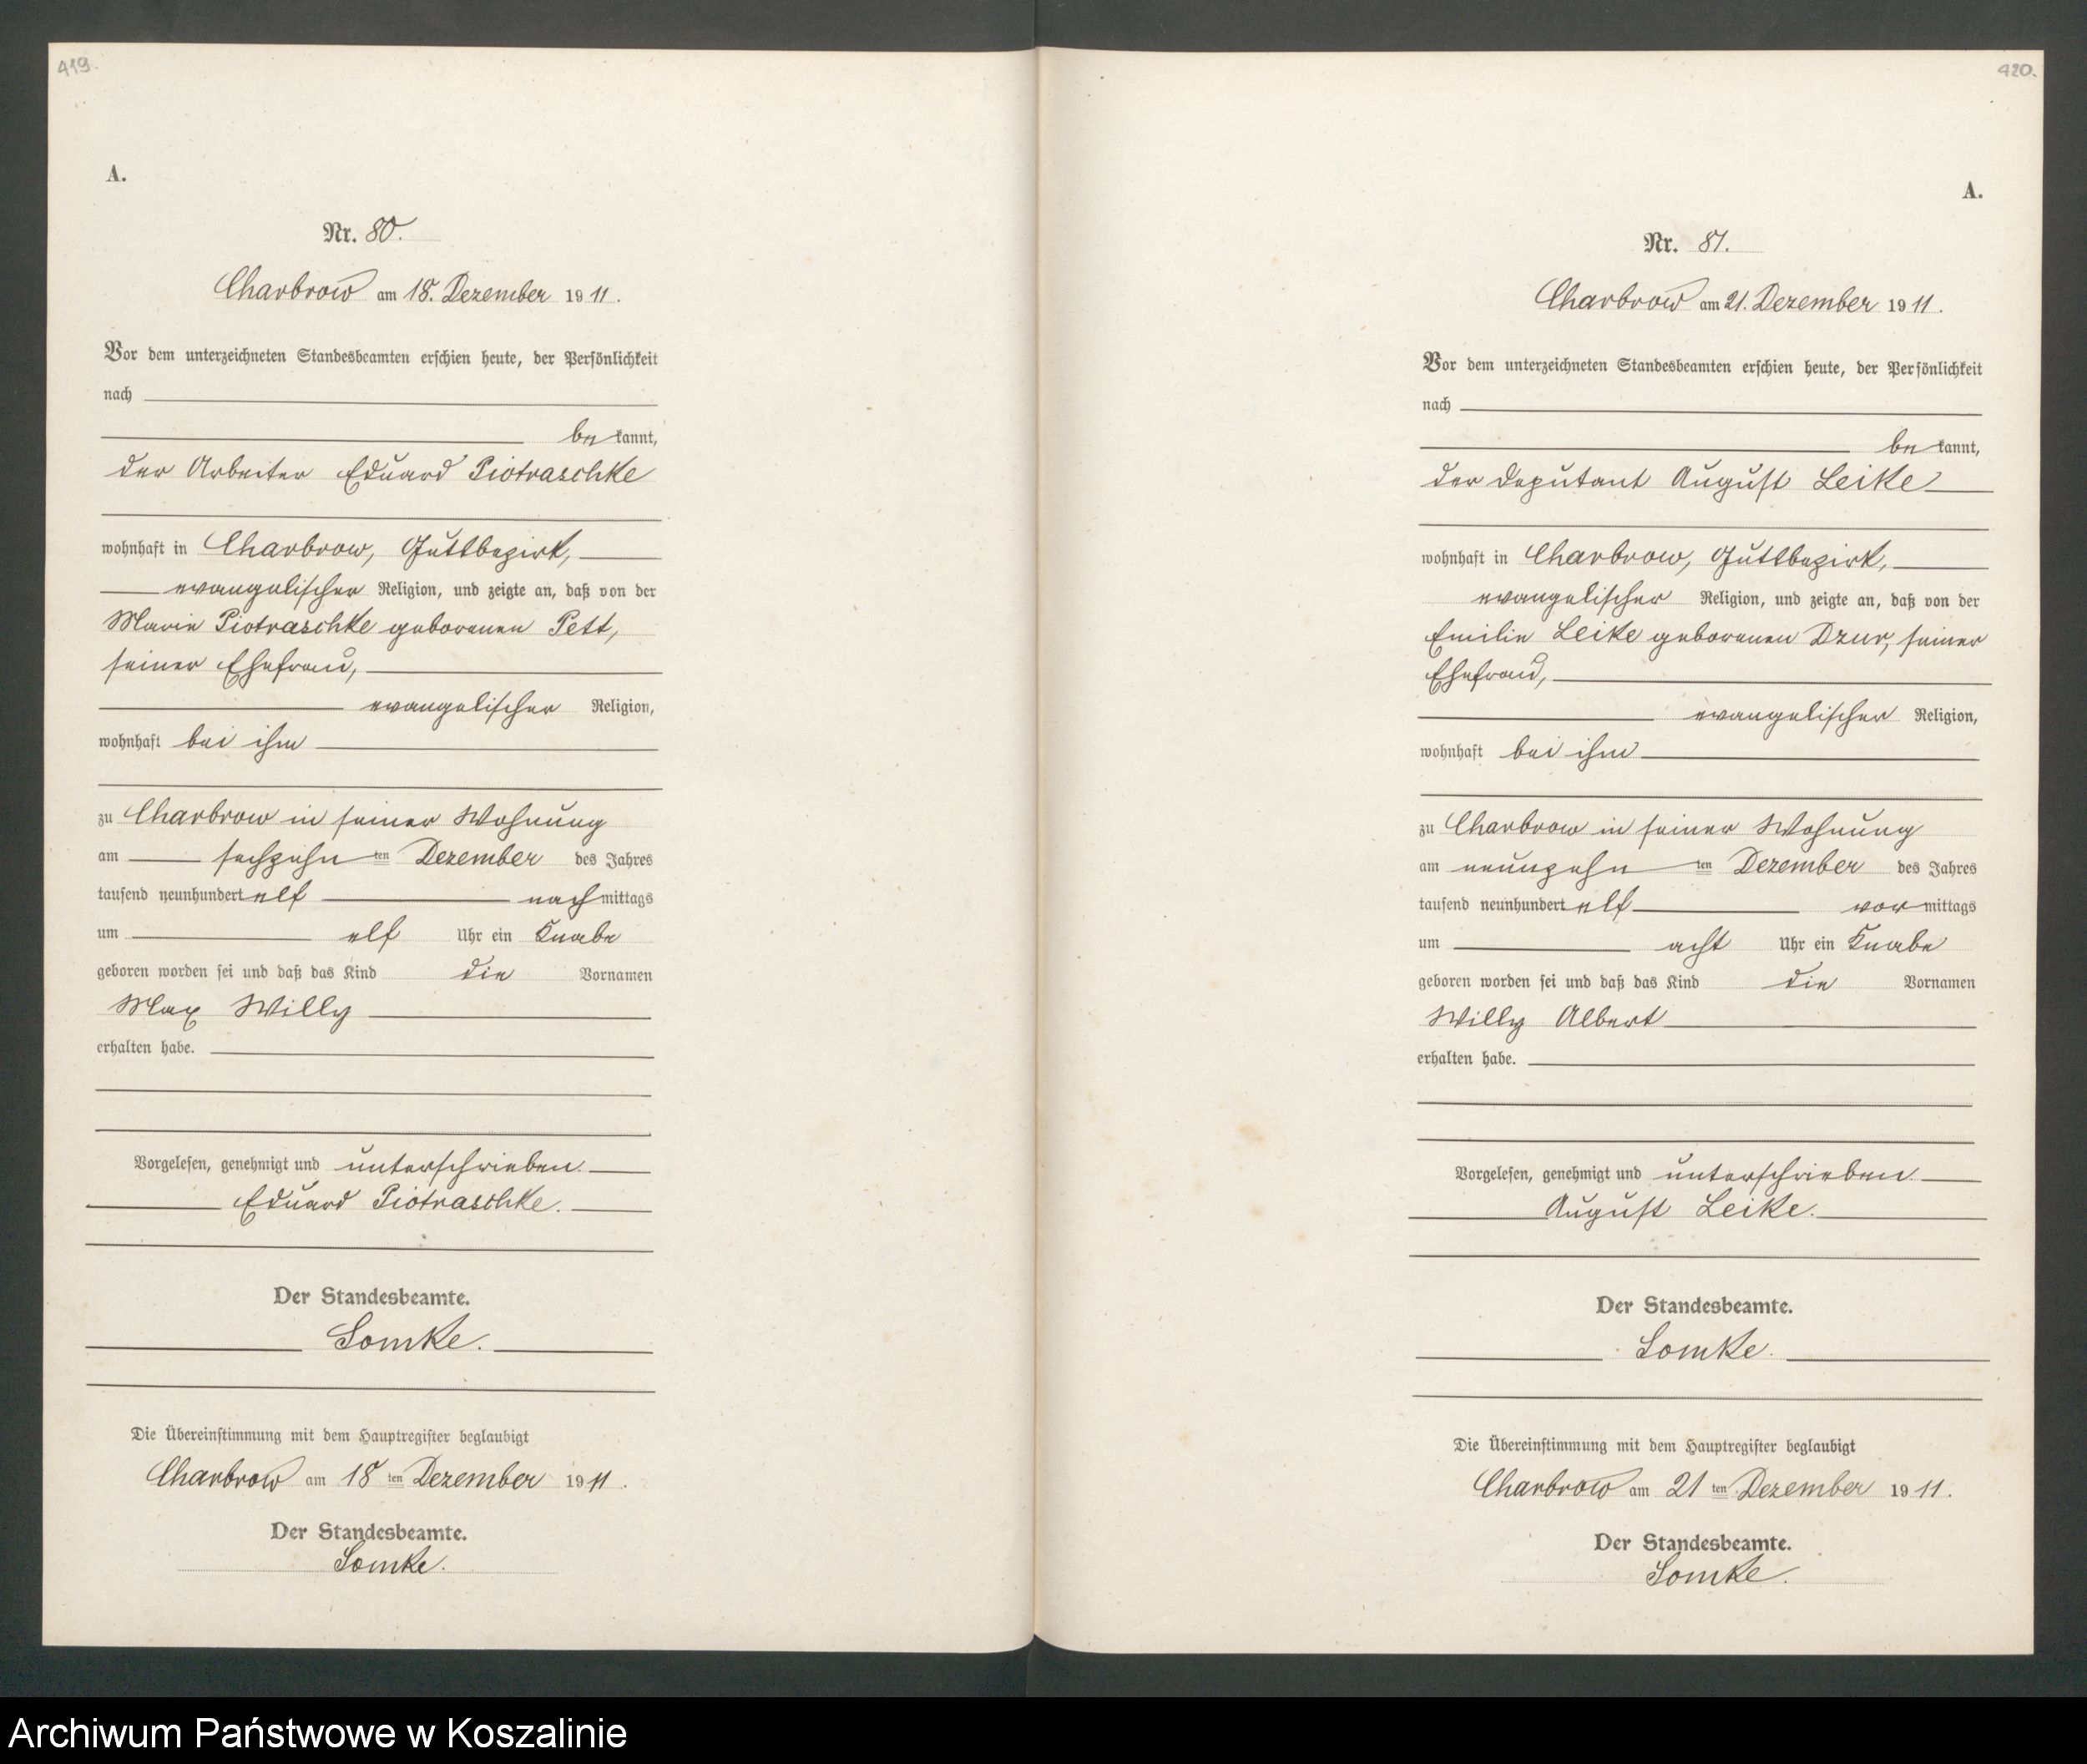 419.
A.
Nr. 80.
Charbrow am 18. Dezember 1911.
Vor dem unterzeichneten Standesbeamten erschien heute, der Persönlichkeit
nach
bekannt,
der Arbeiter Eduard Piotraschke
wohnhaft in Charbrow, Gutsbezirk,
evangelischer Religion, und zeigte an, daß von der
Marie Piotraschke geborenen Pett,
seiner Ehefrau,
evangelischer Religion,
wohnhaft bei ihm
zu Charbrow in seiner Wohnung
am sechzehnten Dezember des Jahres
tausend neunhundert elf nachmittags
um elf Uhr ein Knabe
geboren worden sei und daß das Kind die Vornamen
Max Willy
erhalten habe.
Vorgelesen, genehmigt und unterschrieben.
Eduard Piotraschke.
Der Standesbeamte.
Lomke.
Die Übereinstimmung mit dem Hauptregister beglaubigt
Charbrow am 18ten Dezember 1911.
Der Standesbeamte.
Lomke.
420.
A.
Nr. 81.
Charbrow am 21. Dezember 1911.
Vor dem unterzeichneten Standesbeamten erschien heute, der Persönlichkeit
nach
bekannt,
der Deputant August Leike
wohnhaft in Charbrow, Gutsbezirk,
evangelischer Religion, und zeigte an, daß von der
Emilie Leike geborenen Dzur, seiner
Ehefrau,
evangelischer Religion,
wohnhaft bei ihm
zu Charbrow in seiner Wohnung
am neunzehnten Dezember des Jahres
tausend neunhundert elf vormittags
um acht Uhr ein Knabe
geboren worden sei und daß das Kind die Vornamen
Willy Albert
erhalten habe.
Vorgelesen, genehmigt und unterschrieben.
August Leike.
Der Standesbeamte.
Lomke.
Die Übereinstimmung mit dem Hauptregister beglaubigt
Charbrow am 21ten Dezember 1911.
Der Standesbeamte.
Lomke.
Archiwum Państwowe w Koszalinie